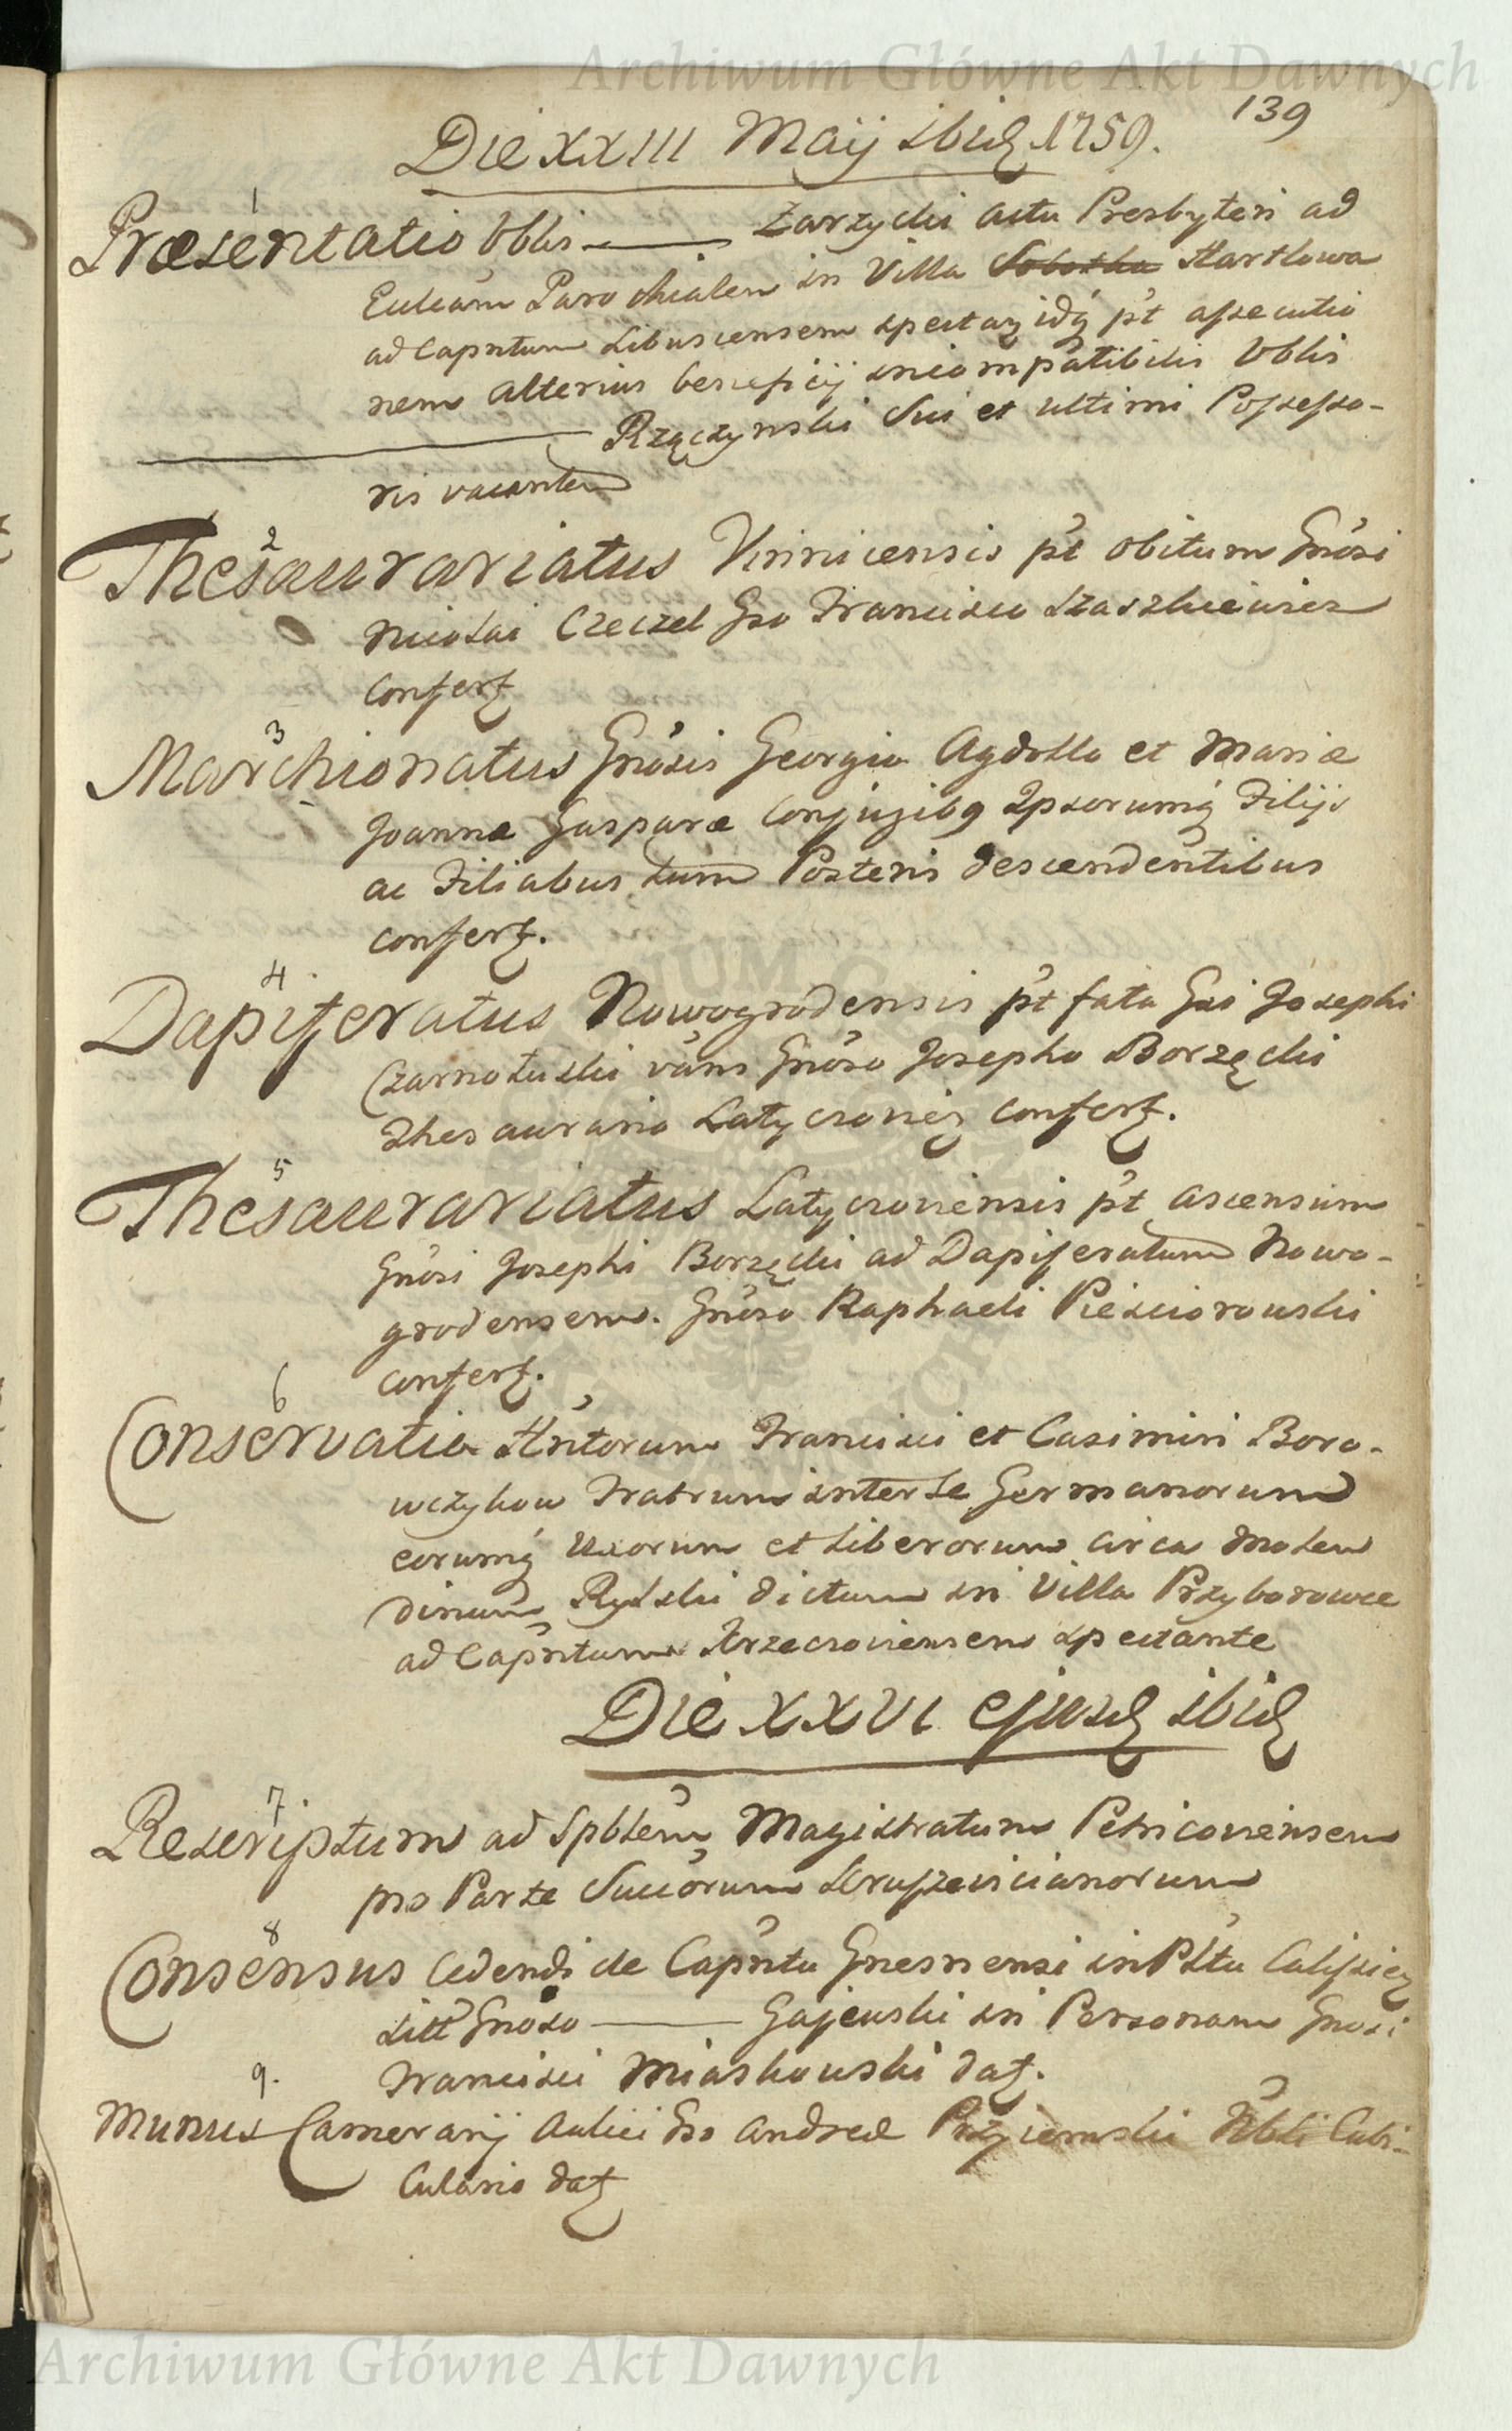 Archiwum Główne Akt Dawnych
139
Die XXIII Maij ibid 1759.
1
Præsentatio Vblis ——— Zarzycki actu Presbyteri ad
Eccleam Parochialem in Villa Sobotka Hartlowa
ad Capntum Libuscensem spectan idq p't assecutio
nem alterius beneficij incompatibilis Vblis
——— Rzączynski Sui et ultimi Possesso-
ris vacantem
2
Thesaurariatus Vinnicensis p't obitum Gnosi
Nicolai Czeczel Gso Francisco Staszkiewicz
Confert
3
Marchionatus Gnosis Georgio Agdollo et Mariæ
Joannæ Gasparæ Conjugibq Ipsorumq Filijs
ac Filiabus tum Posteris descendentibus
confert.
4.
Dapiferatus Nowogrodensis p't fata Gsi Josephi
Czarnotuski vans Gnoso Josepho Borzęcki
Thesaurario Latyczovien confert.
5
Thesaurariatus Latyczoviensis p't ascensum
Gnosi Josephi Borzęcki ad Dapiferatum Nowo-
grodensem. Gnoso Raphaeli Piesciorowski
confert.
6
Conservatio Hntorum Francisci et Casimiri Boro-
wczykow Fratrum inter se Germanorum
eorumq Uxorum et Liberorum circa Molen
dinum Rylski dictum in Villa Przyborowce
ad Capntum Krzeczoviensem spectante
Die XXVI ejusd ibid
7
Rescriptum ad Spblem Magistratum Petricoviensem
pro Parte Succorum Kruszevicianorum
8
Consensus Cedendi de Capntu Gnesnensi in Pltu Calissien
sitt Gnoso ——— Gajewski in Personam Gnosi
Francisci Miaskowski dat.
9.
Munus Camerarij Aulici Gso Andreæ Przyiemski Nbli Cubi-
culario dat
Archiwum Główne Akt Dawnych